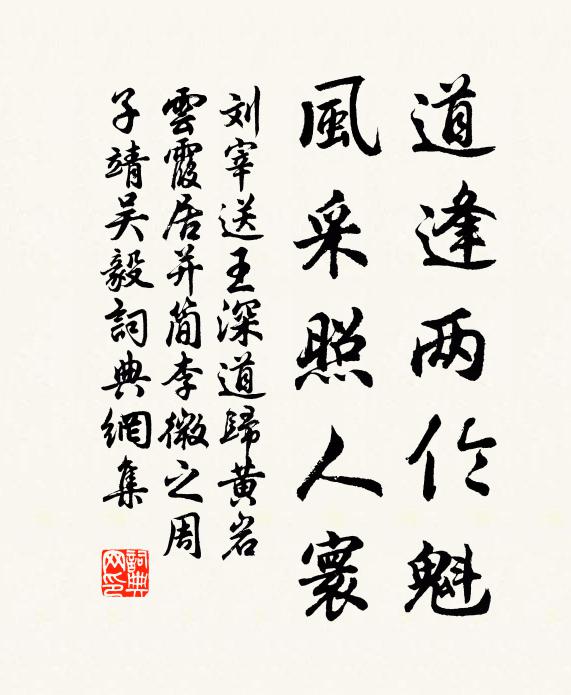 道逢两伦魁
風采照人寰
刘宰送王深道歸黄岩
雲霞居并简李微之周
子靖吴毅詞典網集
詞典
网印